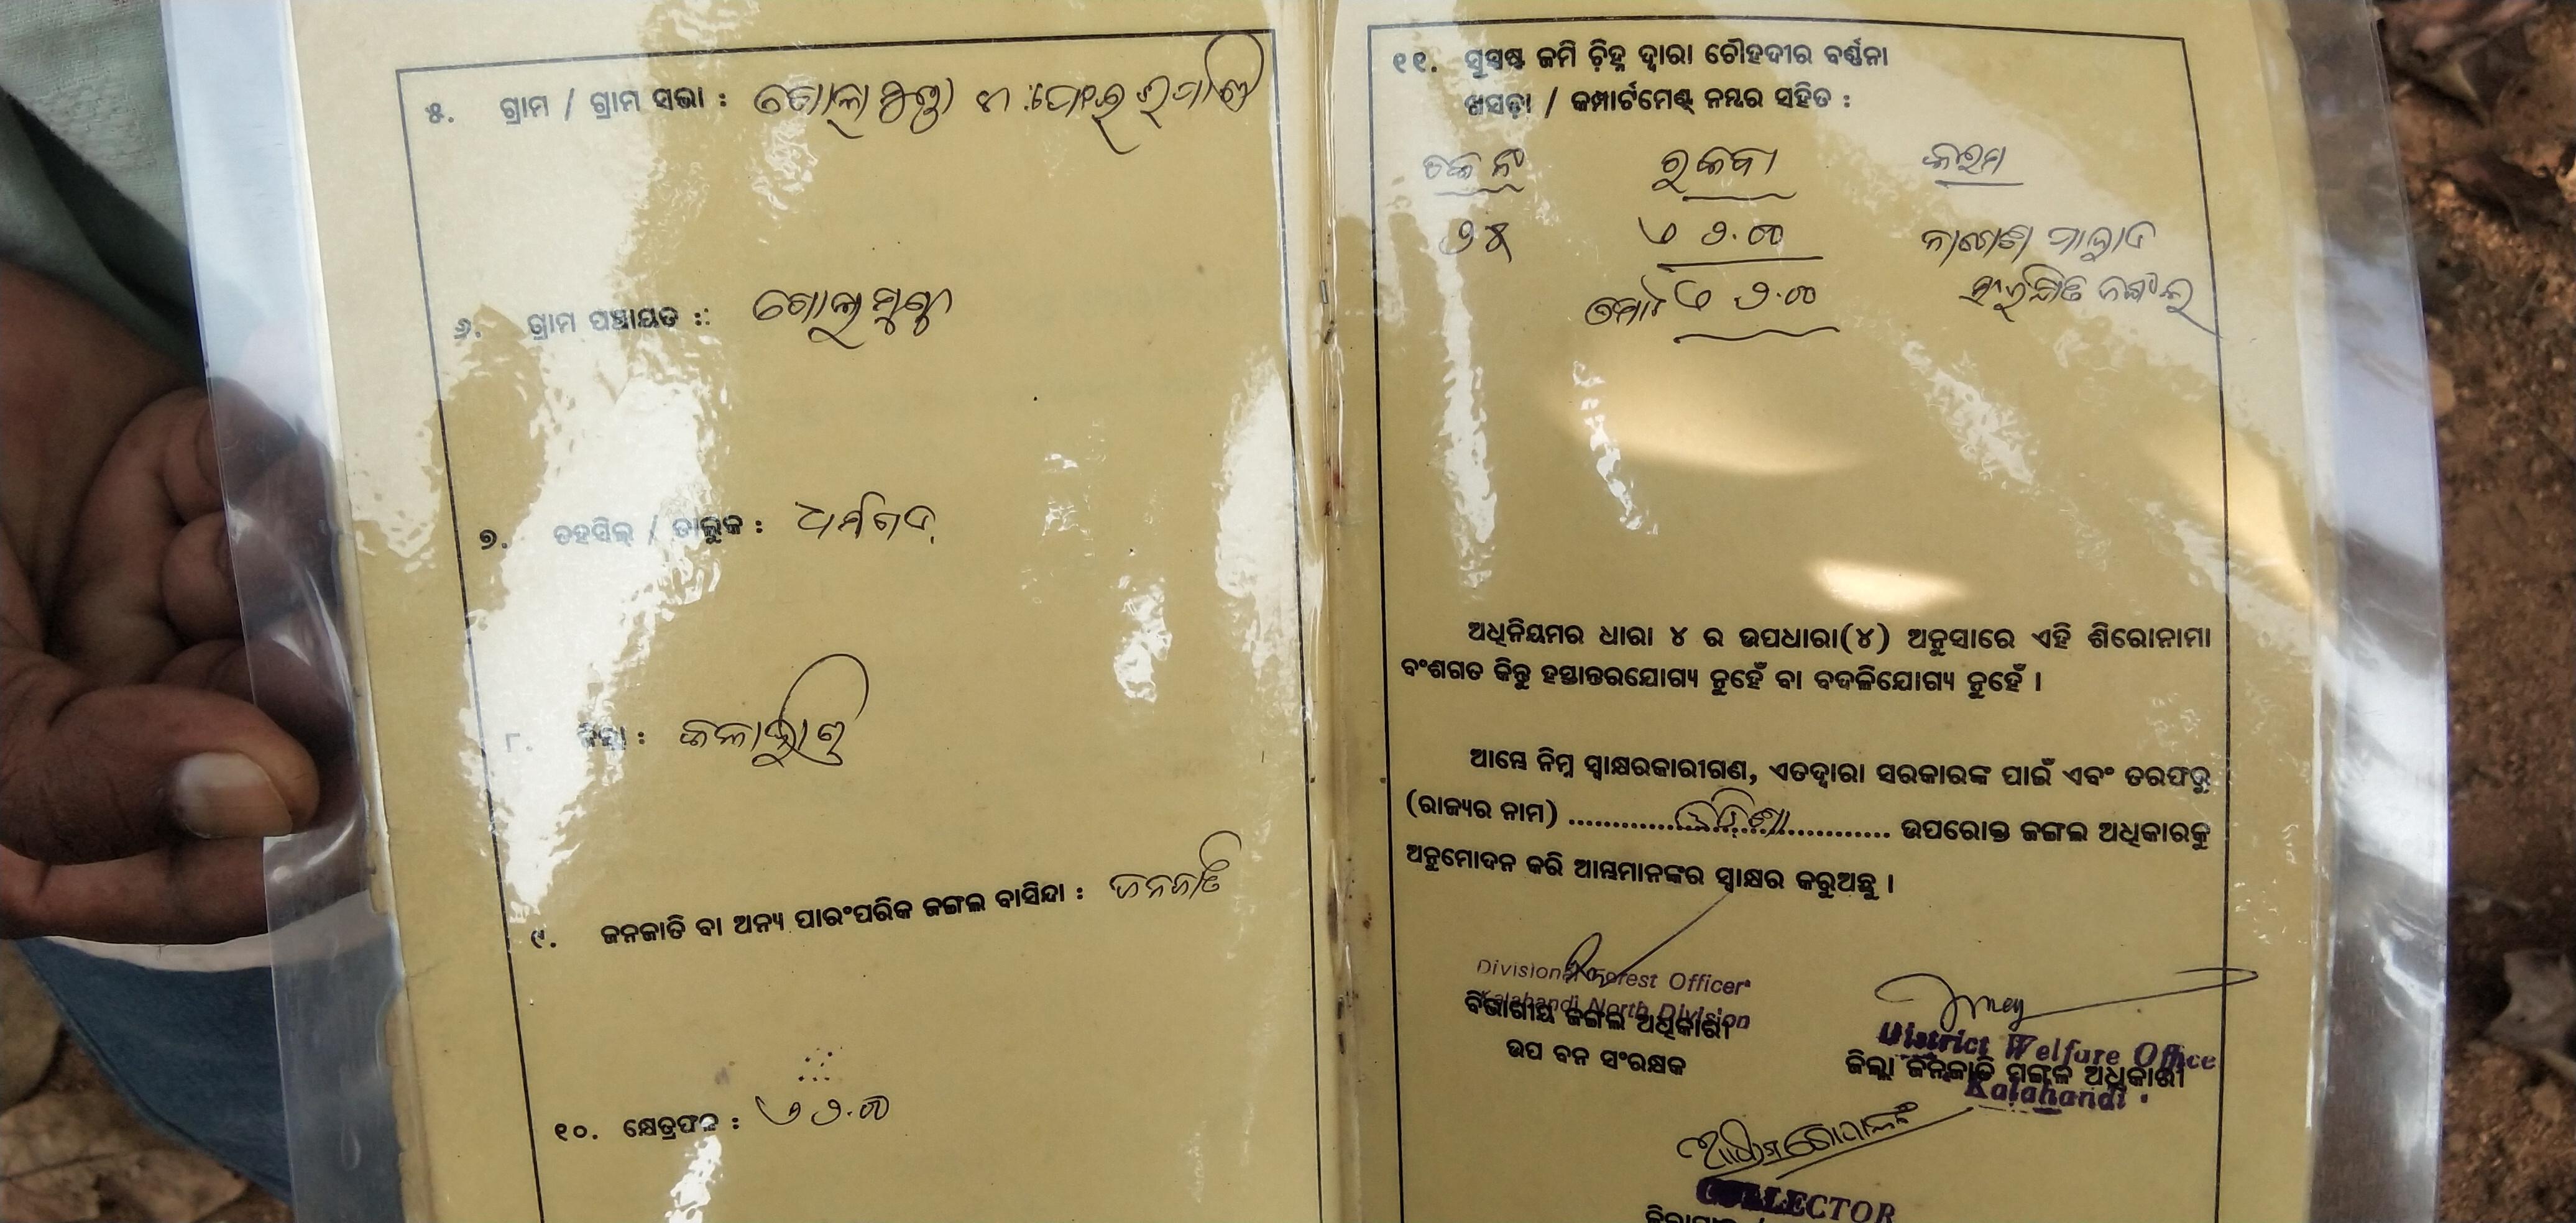 ୫. ଗ୍ରାମ / ଗ୍ରାମ ସଭା : ଗୋଲାମୁଣ୍ଡା
୬. ଗ୍ରାମ ପଞ୍ଚାୟତ : ଗୋଲାମୁଣ୍ଡା
୭. ତହସିଲ୍ / ତାଲୁକ : ଧର୍ମଗଡ଼
୮. ଜିଲ୍ଲା : କଳାହାଣ୍ଡି
୯. ଜନଜାତି ବା ଅନ୍ୟ ପାରଂପରିକ ଜଙ୍ଗଲ ବାସିନ୍ଦା : ଜନଜାତି
୧୦. କ୍ଷେତ୍ରଫଳ : ୨.୦୦
୧୧. ସୁସ୍ପଷ୍ଟ ଜମି ଚ଼ିହ୍ନ ଦ୍ୱାରା ଚୌହଦୀର ବର୍ଣ୍ଣନା
ଖସଡ଼ା / କମ୍ପାର୍ଟମେଣ୍ଟ୍ ନମ୍ବର ସହିତ :
ରକବା କିସମ
୨.୦୦
୨.୦୦
ଅଧିନିୟମର ଧାରା ୪ ର ଉପଧାରା(୪) ଅନୁସାରେ ଏହି ଶିରୋନାମା
ବଂଶଗତ କିନ୍ତୁ ହସ୍ତାନ୍ତରଯୋଗ୍ୟ ନୁହେଁ ବା ବଦଳିଯୋଗ୍ୟ ନୁହେଁ ।
ଆମ୍ଭେ ନିମ୍ନ ସ୍ୱାକ୍ଷରକାରୀଗଣ, ଏତଦ୍ଦ୍ୱାରା ସରକାରଙ୍କ ପାଇଁ ଏବଂ ତରଫରୁ
(ରାଜ୍ୟର ନାମ) ....................ଓଡ଼ିଶା.................... ଉପରୋକ୍ତ ଜଙ୍ଗଲ ଅଧିକାରକୁ
ଅନୁମୋଦନ କରି ଆମ୍ଭମାନଙ୍କର ସ୍ୱାକ୍ଷର କରୁଅଛୁ ।
Divisional Forest Officer
Kalahandi North Division
ବିଭାଗୀୟ ଜଙ୍ଗଲ ଅଧିକାରୀ
ଉପ ବନ ସଂରକ୍ଷକ
District Welfare Office
ଜିଲ୍ଲା ଜନଜାତି ମଙ୍ଗଳ ଅଧିକାରୀ
Kalahandi
COLLECTOR